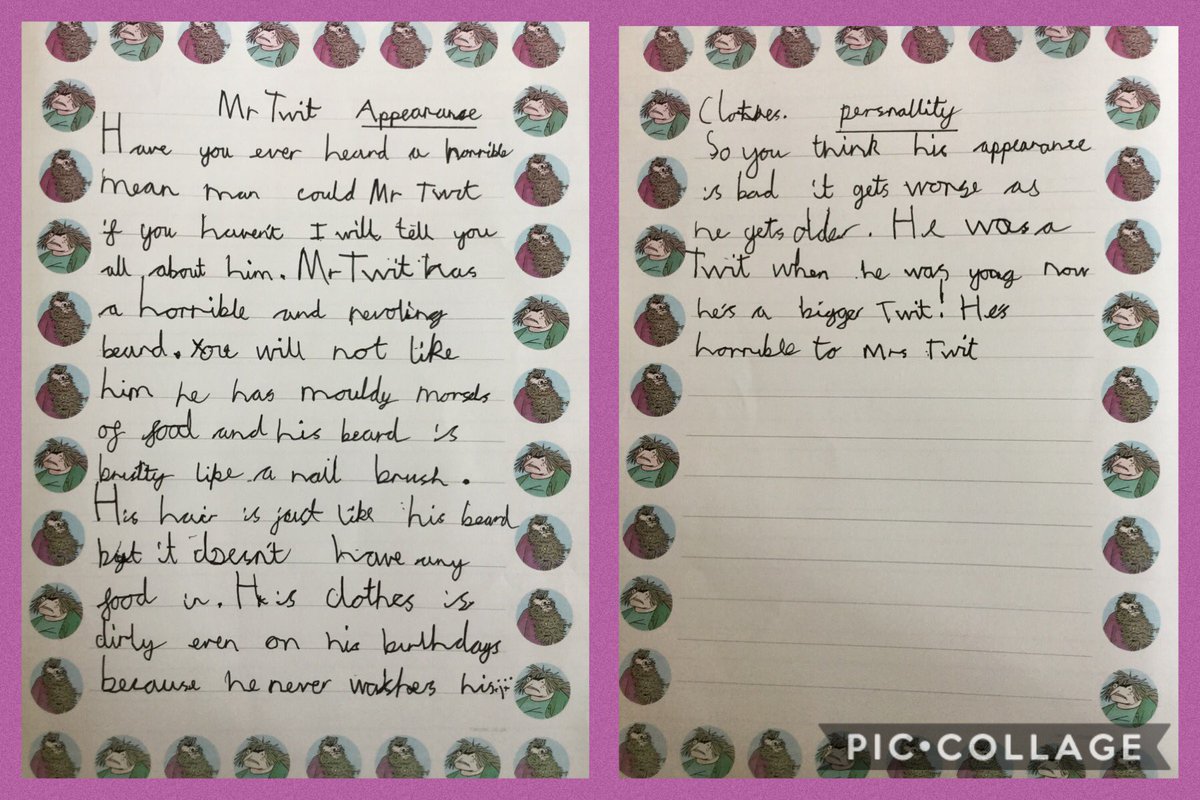 Mr Twit Appearance
Have you ever heard a horrible
mean man could Mr Twit
if you haven't I will tell you
all about him. Mr Twit has
a horrible and revoting
beard. You will not like
him he has mouldy morsels
of food and his beard is
bristly like a nail brush.
His hair is just like his beard
but it doesn't have any
food in. His clothes is
dirly even on his birthdays
because he never washes his
Clothes. persnallity
So you think his appearance
is bad it gets worse as
he gets older. He was a
Twit when he was youg now
he's a bigger Twit! He's
horrible to Mrs Twit
PIC•COLLAGE